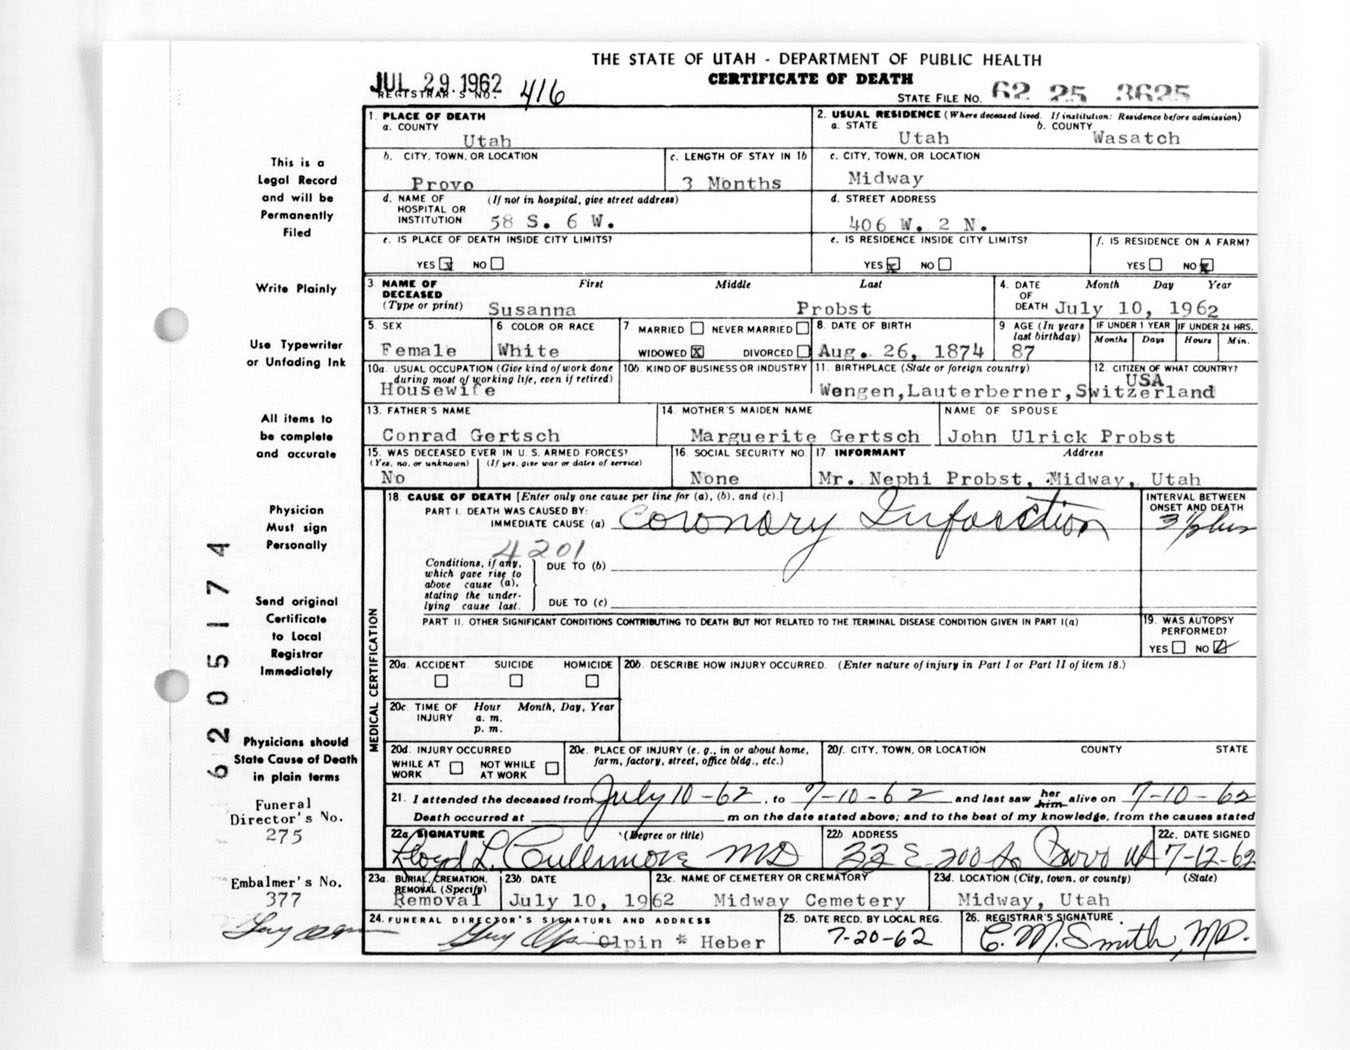 THE STATE OF UTAH - DEPARTMENT OF PUBLIC HEALTH
CERTIFICATE OF DEATH
JUL 29 1962
REGISTRAR'S NO. 416
STATE FILE NO. 62 25 3625
This is a
Legal Record
and will be
Permanently
Filed
Write Plainly
Use Typewriter
or Unfading Ink
All items to
be complete
and accurate
Physician
Must sign
Personally
Send original
Certificate
to Local
Registrar
Immediately
Physicians should
State Cause of Death
in plain terms
Funeral
Director's No.
275
Embalmer's No.
377
6205174
1. PLACE OF DEATH
a. COUNTY
Utah
2. USUAL RESIDENCE (Where deceased lived. If institution: Residence before admission)
a. STATE b. COUNTY
Utah Wasatch
b. CITY, TOWN, OR LOCATION
Provo
c. LENGTH OF STAY IN 1b
3 Months
c. CITY, TOWN, OR LOCATION
Midway
d. NAME OF (If not in hospital, give street address)
HOSPITAL OR
INSTITUTION 58 S. 6 W.
d. STREET ADDRESS
406 W. 2 N.
e. IS PLACE OF DEATH INSIDE CITY LIMITS?
YES X NO
e. IS RESIDENCE INSIDE CITY LIMITS?
YES X NO
f. IS RESIDENCE ON A FARM?
YES NO X
3. NAME OF First Middle Last
DECEASED
(Type or print) Susanna Probst
4. DATE Month Day Year
OF
DEATH July 10, 1962
5. SEX
Female
6. COLOR OR RACE
White
7 MARRIED NEVER MARRIED
WIDOWED X DIVORCED
8. DATE OF BIRTH
Aug. 26, 1874
9 AGE (In years
last birthday)
87
IF UNDER 1 YEAR IF UNDER 24 HRS.
Months Days Hours Min.
10a. USUAL OCCUPATION (Give kind of work done
during most of working life, even if retired)
Housewife
10b. KIND OF BUSINESS OR INDUSTRY
11. BIRTHPLACE (State or foreign country)
Wengen, Lauterberner, Switzerland
12. CITIZEN OF WHAT COUNTRY?
USA
13. FATHER'S NAME
Conrad Gertsch
14. MOTHER'S MAIDEN NAME
Marguerite Gertsch
NAME OF SPOUSE
John Ulrick Probst
15. WAS DECEASED EVER IN U. S. ARMED FORCES?
(Yes, no, or unknown) (If yes, give war or dates of service)
No
16. SOCIAL SECURITY NO.
None
17. INFORMANT Address
Mr. Nephi Probst, Midway, Utah
MEDICAL CERTIFICATION
18. CAUSE OF DEATH [Enter only one cause per line for (a), (b), and (c).]
PART I. DEATH WAS CAUSED BY:
IMMEDIATE CAUSE (a) Coronary Infarction
INTERVAL BETWEEN
ONSET AND DEATH
3 1/2 hrs
4201
Conditions, if any,
which gave rise to
above cause (a),
stating the under-
lying cause last.
DUE TO (b)
DUE TO (c)
PART II. OTHER SIGNIFICANT CONDITIONS CONTRIBUTING TO DEATH BUT NOT RELATED TO THE TERMINAL DISEASE CONDITION GIVEN IN PART I(a)
19. WAS AUTOPSY
PERFORMED?
YES NO
20a. ACCIDENT SUICIDE HOMICIDE
20b. DESCRIBE HOW INJURY OCCURRED. (Enter nature of injury in Part I or Part II of item 18.)
20c. TIME OF Hour Month, Day, Year
INJURY a. m.
p. m.
20d. INJURY OCCURRED
WHILE AT NOT WHILE
WORK AT WORK
20e. PLACE OF INJURY (e. g., in or about home,
farm, factory, street, office bldg., etc.)
20f. CITY, TOWN, OR LOCATION COUNTY STATE
21. I attended the deceased from July 10-62, to 7-10-62 and last saw her him alive on 7-10-62
Death occurred at m on the date stated above; and to the best of my knowledge, from the causes stated
22a. SIGNATURE (Degree or title)
Lloyd L. Cullimore MD
22b. ADDRESS
33 E 200 So Provo Ut
22c. DATE SIGNED
7-12-62
23a. BURIAL, CREMATION,
REMOVAL (Specify)
Removal
23b. DATE
July 10, 1962
23c. NAME OF CEMETERY OR CREMATORY
Midway Cemetery
23d. LOCATION (City, town, or county) (State)
Midway, Utah
24. FUNERAL DIRECTOR'S SIGNATURE AND ADDRESS
Olpin * Heber
25. DATE RECD. BY LOCAL REG.
7-20-62
26. REGISTRAR'S SIGNATURE
C. M. Smith, MD.